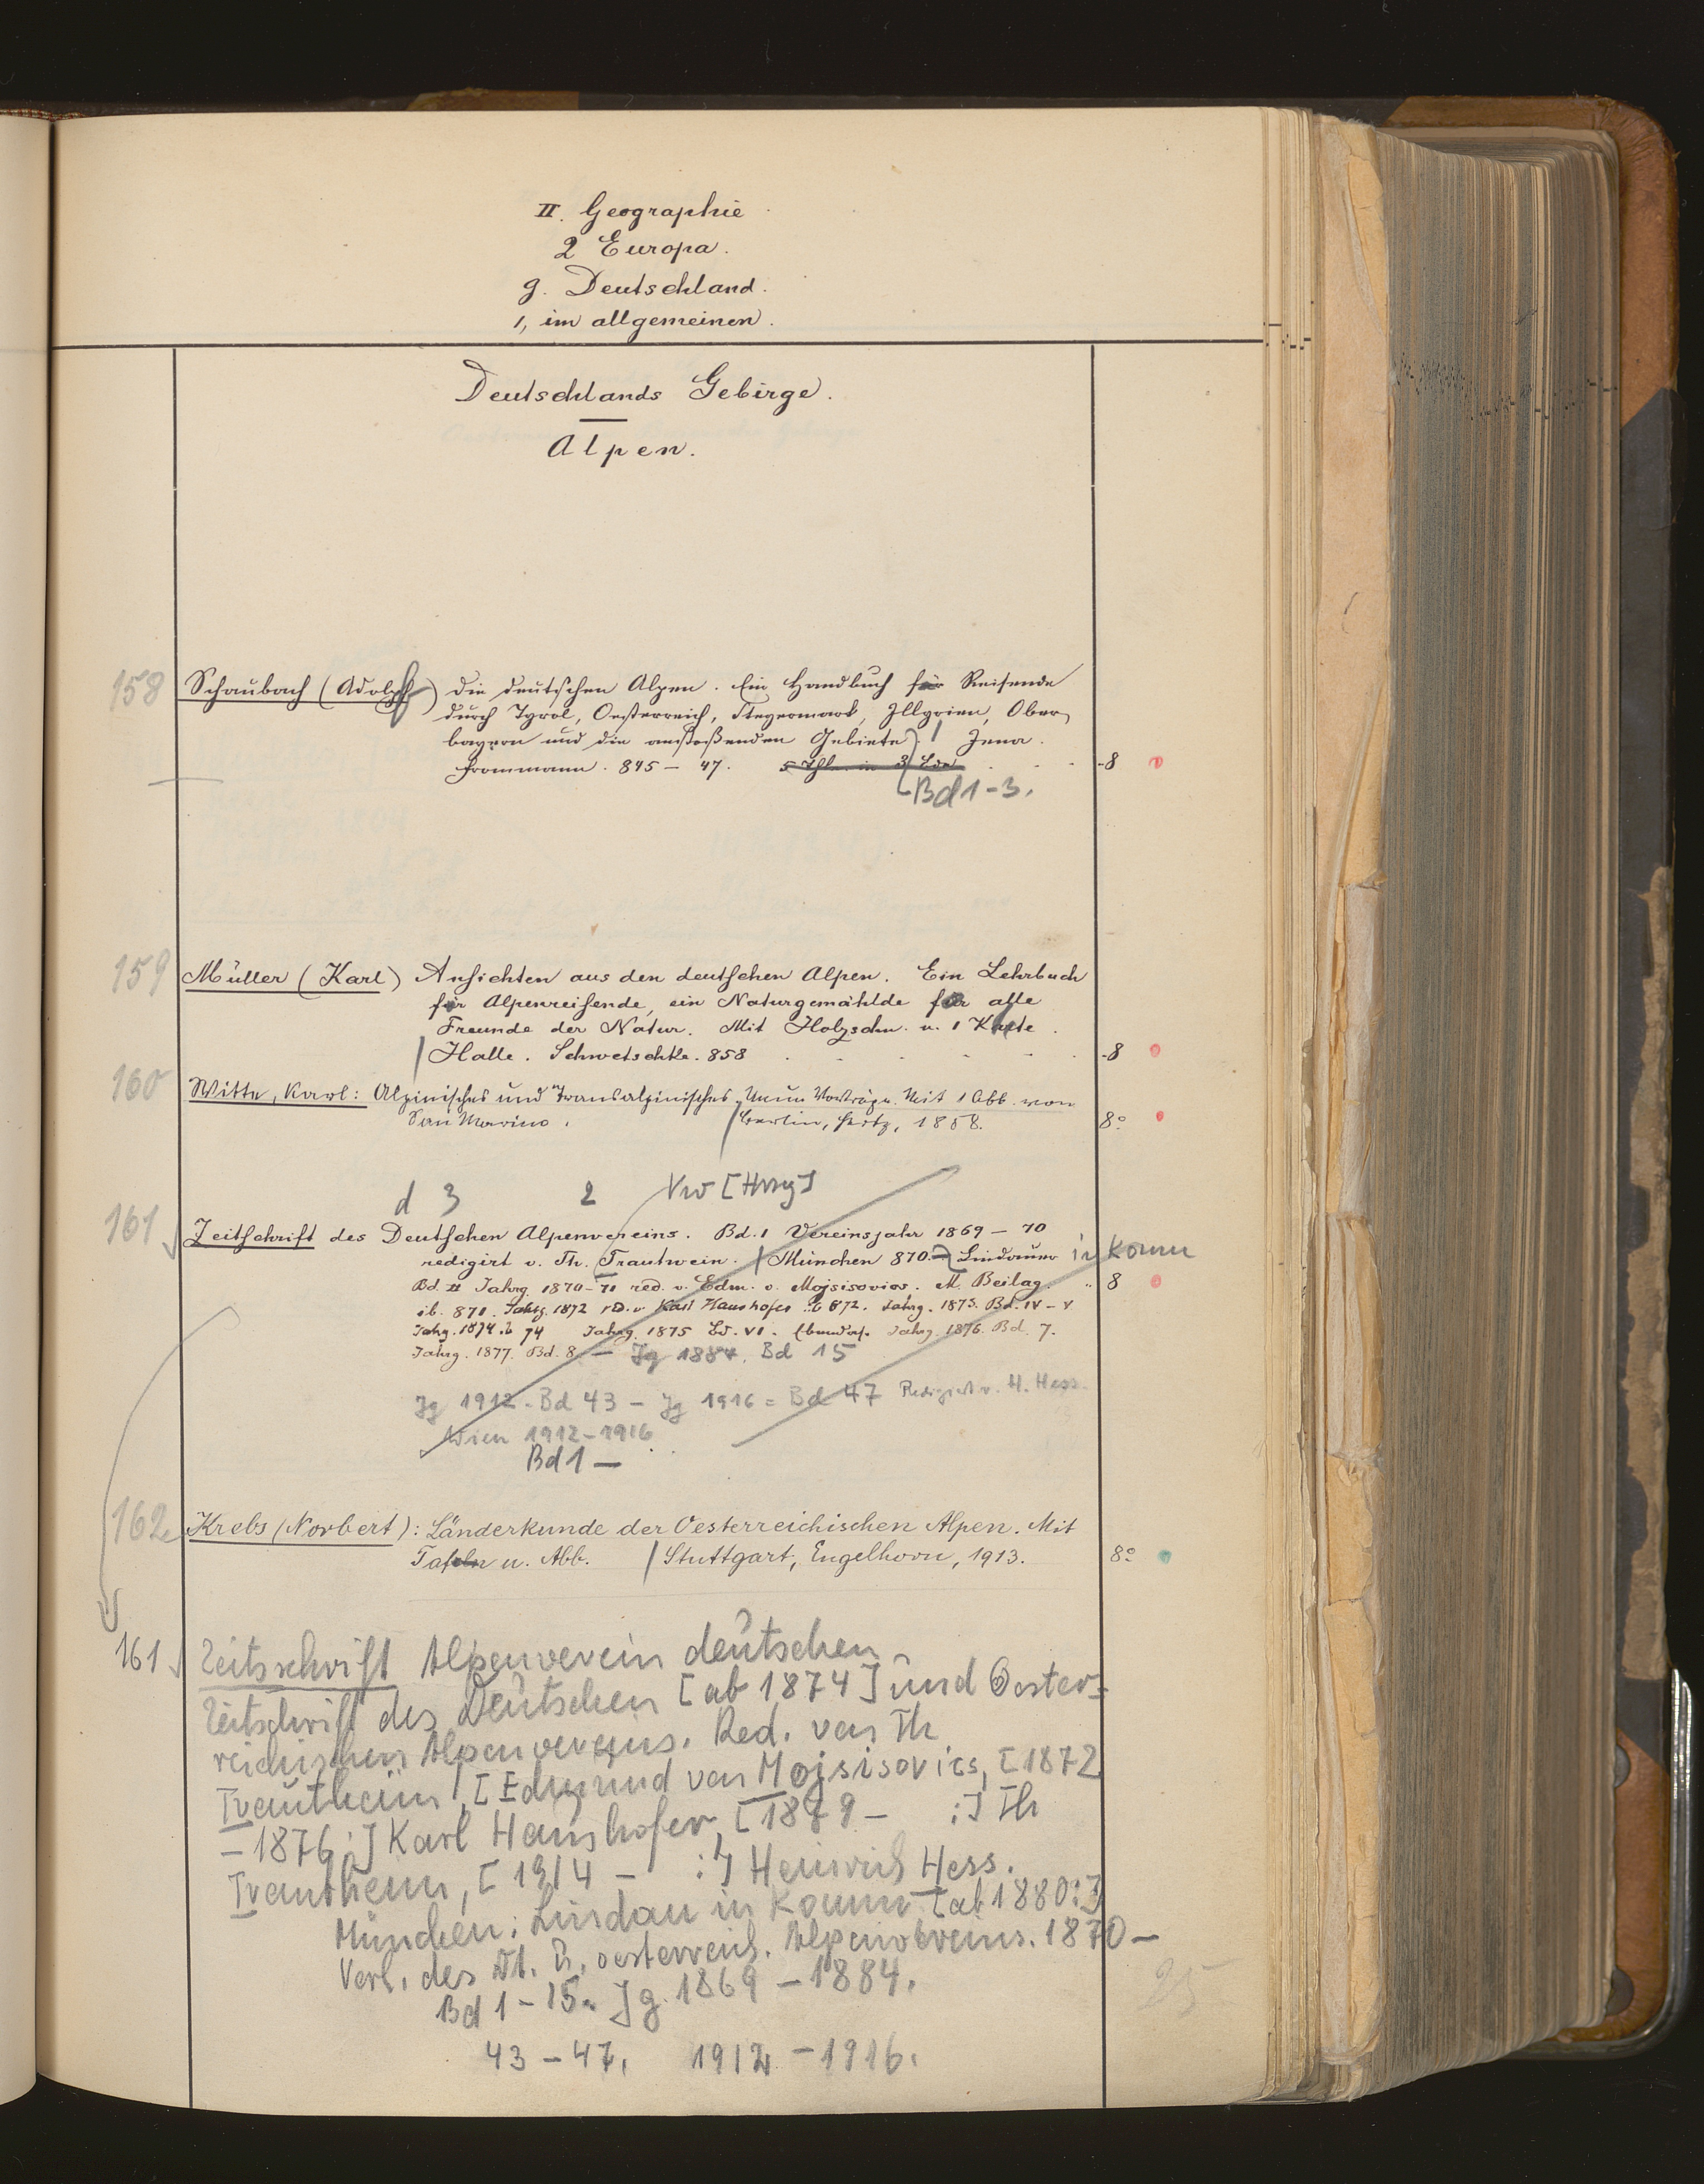 II. Geographie
2 Europa.
g. Deutschland.
1, im allgemeinen.
Deutschlands Gebirge.
Alpen.
158 Schaubach (Adolph) die deutschen Alpen. Ein Handbuch für Reisende
durch Tyrol, Oesterreich, Steyermark, Illyrien, Ober-
bayern und die anstoßenden Gebiete. / Jena.
Frommann. 845 – 47. 5 Thl. in 3 Bde. 8
Bd 1-3.
159 Müller (Karl) Ansichten aus den deutschen Alpen. Ein Lehrbuch
für Alpenreisende, ein Naturgemählde für alle
Freunde der Natur. Mit Holzschn. u. 1 Karte.
/ Halle. Schwetschke. 858 8
160 Witte, Karl: Alpinisches und Transalpinisches. Neun Vorträge. Mit 1 Abb. von
San Marino. / Berlin, Hertz, 1858. 8°
d 3 2 Vw [Hrsg]
161 Zeitschrift des Deutschen Alpenvereins. Bd. 1 Vereinsjahr 1869 – 70
redigirt v. Th. Trautwein. / München 870. Lindauer in Komm
Bd. II Jahrg. 1870-71 red. v. Edm. v. Mojsisovics. M. Beilag. 8
ib. 871. Jahrg. 1872 red. v. Karl Haushofer ib 872. Jahrg. 1873. Bd. IV – V
Jahrg. 1874 ib 74 Jahrg. 1875 Bd. VI. Ebendas. Jahrg. 1876. Bd. 7.
Jahrg. 1877. Bd. 8. — Jg 1884. Bd 15
Jg 1912 = Bd 43 – Jg 1916 = Bd 47 Redigiert v. H. Hess.
Wien 1912–1916
Bd 1 —
162 Krebs (Norbert): Länderkunde der Oesterreichischen Alpen. Mit
Tafeln u. Abb. / Stuttgart, Engelhorn, 1913. 8°
161 Zeitsschrift Alpenverein deutschen
Zeitschrift des Deutschen [ab 1874] und Oester-
reichischen Alpenvereins. Red. von Th
Trautheim / [Edmund von Mojsisovics, [1872
– 1876:] Karl Haushofer, [1879 – :] Th
Trautheim, [1914 – :] Heinrich Hess.
München: Lindau in Komm [ab 1880:]
Verl. des Dt. u. oesterreich. Alpenvereins. 1870 —
Bd 1 – 15. Jg. 1869 – 1884.
43 – 47. 1912 – 1916.
25